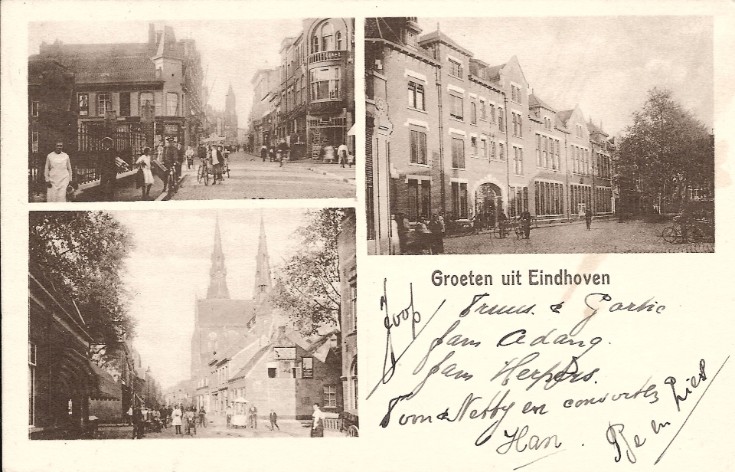 Groeten uit Eindhoven
Joop
Truus &
fam Adang.
fam Herpers.
Toon & Netty en consorten
Han.
en Piet